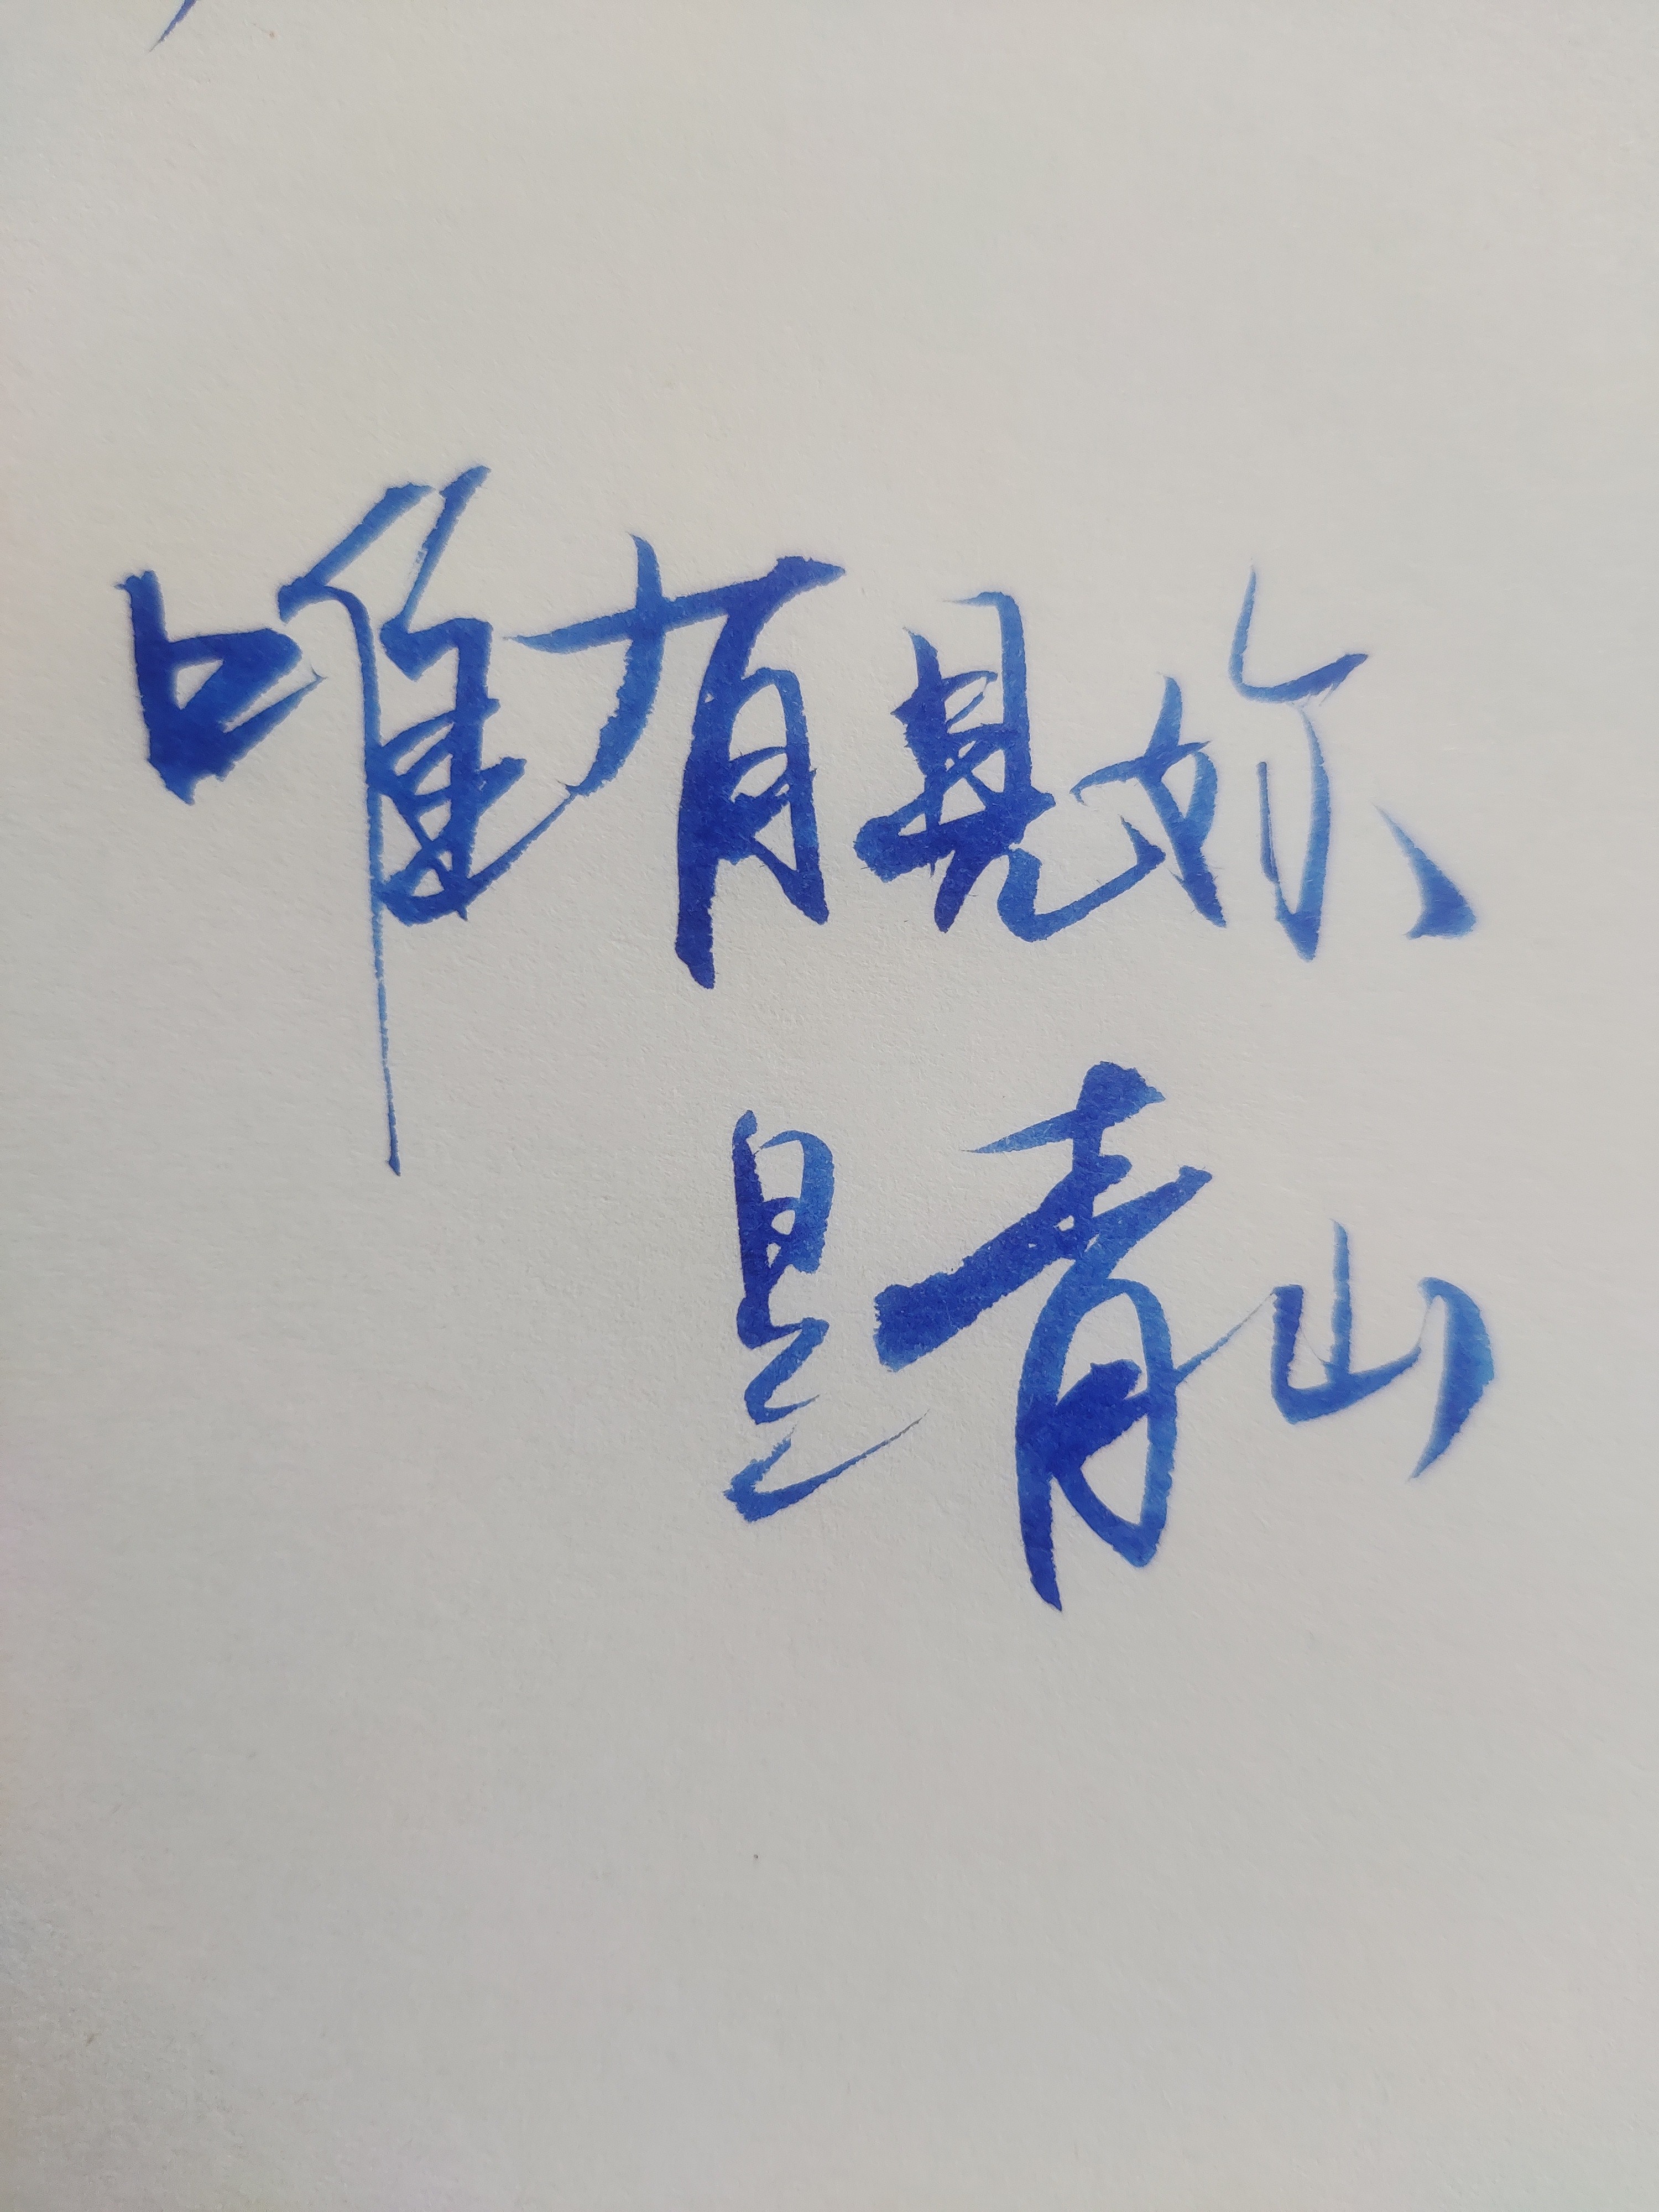 唯有见妳
是青山